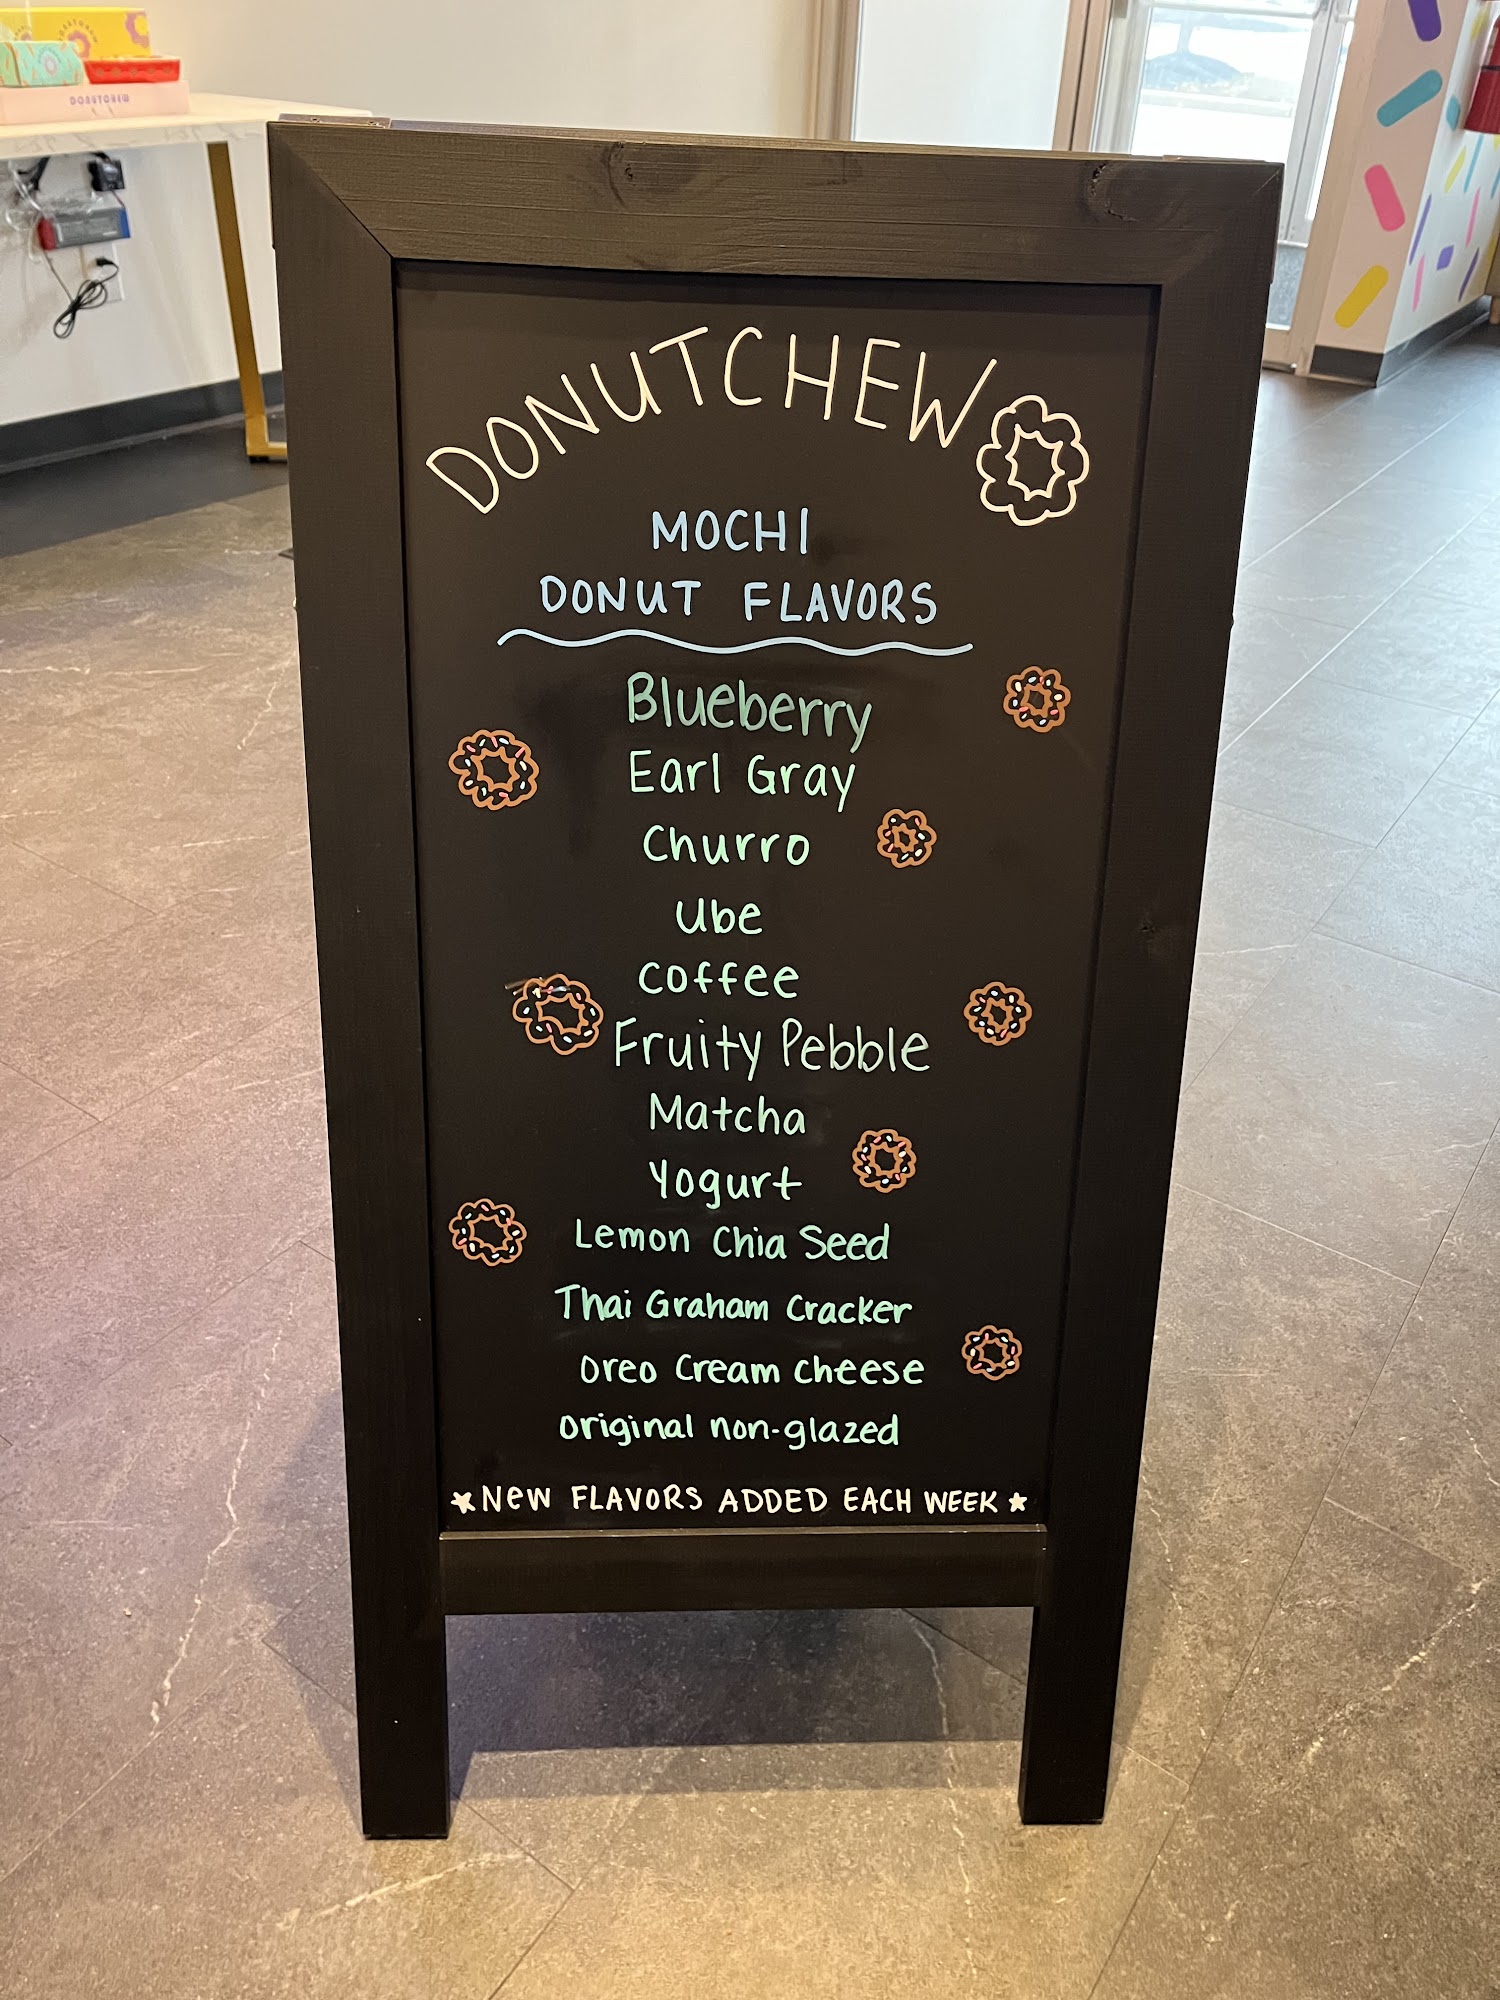 DONUTCHEW
DONUTCHEW
MOCHI
DONUT FLAVORS
Blueberry
Earl Gray
Churro
Ube
Coffee
Fruity Pebble
Matcha
Yogurt
Lemon Chia Seed
Thai Graham Cracker
Oreo Cream Cheese
Original non-glazed
NEW FLAVORS ADDED EACH WEEK